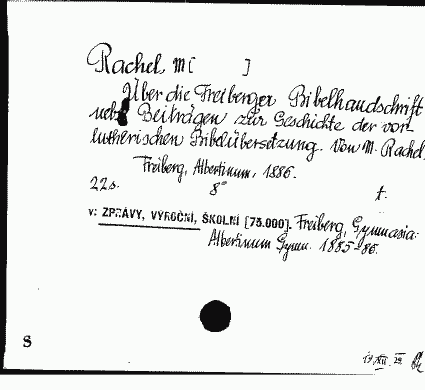 Rachel, M[ ]
Über die Freiberger Bibelhandschrift
nebst Beiträgen zur Geschichte der vor-
lutherischen Bibelübersetzung. Von M. Rachel.
Freiberg, Albertinum, 1886.
22 s. 8° t.
v: ZPRÁVY, VÝROČNÍ, ŠKOLNÍ [75.000]. Freiberg, Gymnasia:
Albertinum Gymn. 1885-86.
8
19. XII. 29